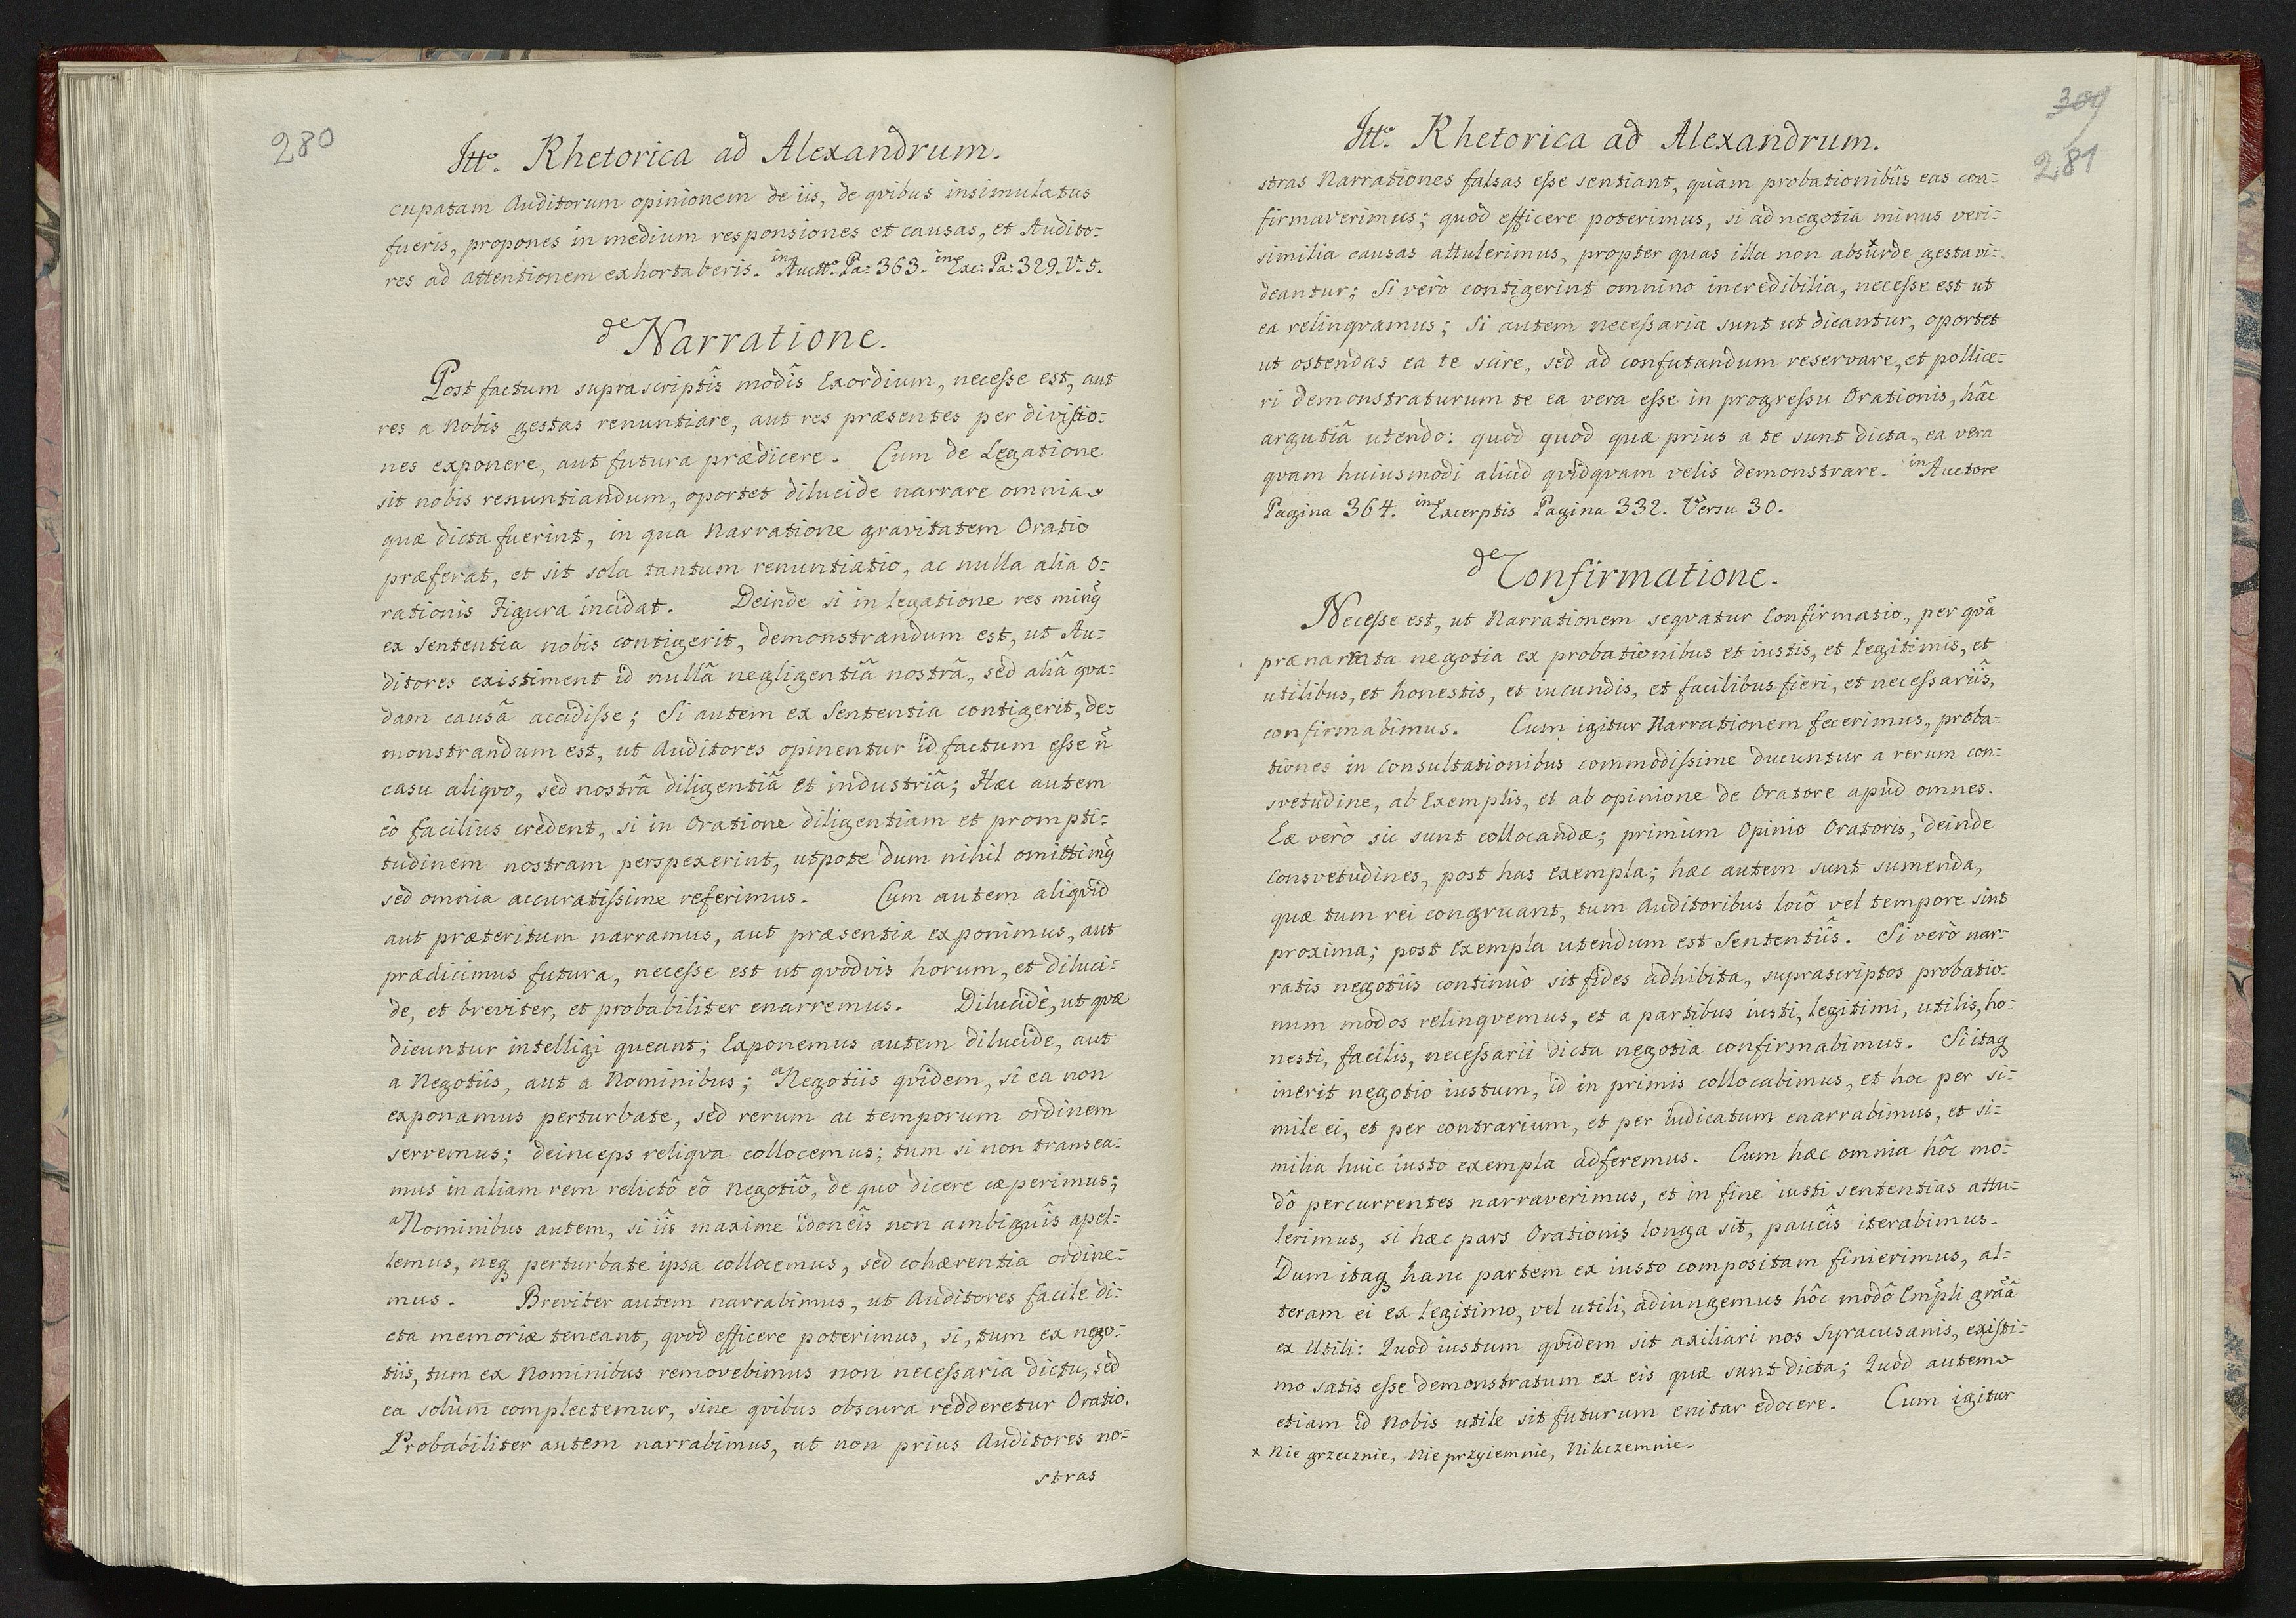 280
Itto. Rhetorica ad Alexandrum.
cupatam Auditorum opinionem de iis, de qvibus insimulatus
fueris, propones in medium responsiones et causas, et Audito=
res ad attentionem exhortaberis. in Auctto. Pa: 363. in Exc: Pa: 329. V. 5.
de Narratione.
Post factum suprascriptîs modîs Exordium, necesse est, aut
res a Nobis gestas renuntiare, aut res præsentes per divisio=
nes exponere, aut futura prædicere. Cum de Legatione
sit nobis renuntiandum, oportet dilucide narrare omnia
quæ dicta fuerint, in qua Narratione gravitatem Oratio
præferat, et sit sola tantum renuntiatio, ac nulla alia O=
rationis Figura incidat. Deinde si in legatione res minq̃
ex sententia nobis contigerit, demonstrandum est, ut Au=
ditores existiment id nullâ negligentiâ nostrâ, sed aliâ qva=
dam causâ accidisse; Si autem ex Sententia contigerit, de=
monstrandum est, ut Auditores opinentur id factum esse ñ
casu aliqvo, sed nostrâ diligentiâ et industriâ; Hæc autem
eô facilius credent, si in Oratione diligentiam et prompti=
tudinem nostram perspexerint, utpote dum nihil omittimq̃
sed omnia accuratissime referimus. Cum autem aliqvid
aut præteritum narramus, aut præsentia exponimus, aut
prædicimus futura, necesse est ut qvodvis horum, et diluci=
de, et breviter, et probabiliter enarremus. Dilucidè, ut qvæ
dicuntur intelligi queant; Exponemus autem dilucide, aut
a Negotiis, aut a Nominibus; a Negotiis qvidem, si ea non
exponamus perturbate, sed rerum ac temporum ordinem
servemus; deinceps reliqva collocemus; tum si non transea=
mus in aliam rem relictô eô Negotiô, de quo dicere cæperimus;
a Nominibus autem, si iîs maxime idoneîs non ambiguîs apel=
lemus, neq; perturbate ipsa collocemus, sed cohærentia ordine=
mus. Breviter autem narrabimus, ut Auditores facile di=
cta memoriæ teneant, qvod efficere poterimus, si, tum ex nego=
tiis, tum ex Nominibus removebimus non necessaria dictu, sed
ea solùm complectemur, sine qvibus obscura redderetur Oratio.
Probabiliter autem narrabimus, ut non prius Auditores no=
stras
309
281
Itto. Rhetorica ad Alexandrum.
stras Narrationes falsas esse sentiant, quàm probationibus eas con=
firmaverimus; quod efficere poterimus, si ad negotia minus veri=
similia causas attulerimus, propter quas illa non absurde x gesta vi=
deantur; Si verò contigerint omnino incredibilia, necesse est ut
ea relinqvamus; Si autem necessaria sunt ut dicantur, oportet
ut ostendas ea te scire, sed ad confutandum reservare, et pollice=
ri demonstraturum te ea vera esse in progressu Orationis, hâc
argutiâ utendo: quod quod quæ prius a te sunt dicta, ea vera
qvam huiusmodi aliud qvidqvam velis demonstrare. in Auctore
Pagina 364. in Excerptis Pagina 332. Versu 30.
de Confirmatione.
Necesse est, ut Narrationem seqvatur Confirmatio, per qvã
prænarrata negotia ex probationibus et iustis, et legitimis, et
utilibus, et honestis, et iucundis, et facilibus fieri, et necessariîs,
confirmabimus. Cum igitur Narrationem fecerimus, proba=
tiones in consultationibus commodissime ducuntur a rerum con=
svetudine, ab Exemplis, et ab opinione de Oratore apud omnes.
Eæ verò sic sunt collocandæ; primùm Opinio Oratoris, deinde
Consvetudines, post has Exempla; hæc autem sunt sumenda,
quæ tum rei congruant, tum Auditoribus locô vel tempore sint
proxima; post Exempla utendum est Sententiîs. Si verò nar=
ratis negotiis continuò sit fides adhibita, suprascriptos probatio=
num modos relinqvemus, et a partibus iusti, legitimi, utilis, ho=
nesti, facilis, necessarii dicta negotia confirmabimus. Si itaq;
inerit negotio iustum, id in primis collocabimus, et hoc per si=
mile ei, et per contrarium, et per iudicatum enarrabimus, et si=
milia huic iusto exempla adferemus. Cum hæc omnia hôc mo=
dô percurrentes narraverimus, et in fine iusti sententias attu=
lerimus, si hæc pars Orationis longa sit, paucîs iterabimus.
Dum itaq; hanc partem ex iusto compositam finierimus, al=
teram ei ex legitimo, vel utili, adiungemus hôc modô Empli grãâ
ex Utili: Quod iustum qvidem sit axiliari nos Syracusanis, existi=
mo satis esse demonstratum ex eis quæ sunt dicta; Quod autem
etiam id Nobis utile sit futurum enitar edocere. Cum igitur
x Nie grzecznie, Nie przyiemnie, Nikczemnie.